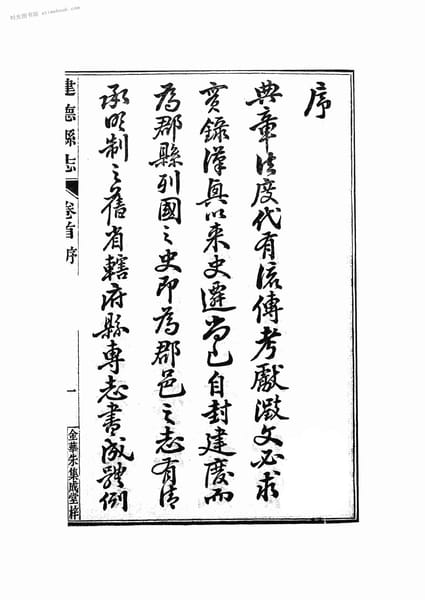 时光图书馆 - atimebook.com
序
典章法度代有流傳考獻徵文必求
實錄漢興以来史遷尚已自封建廢而
為郡縣列國之史即為郡邑之志有清
承明制之舊省轄府縣專志書成體例
建德縣志
卷首 序
一
金華朱集成堂梓